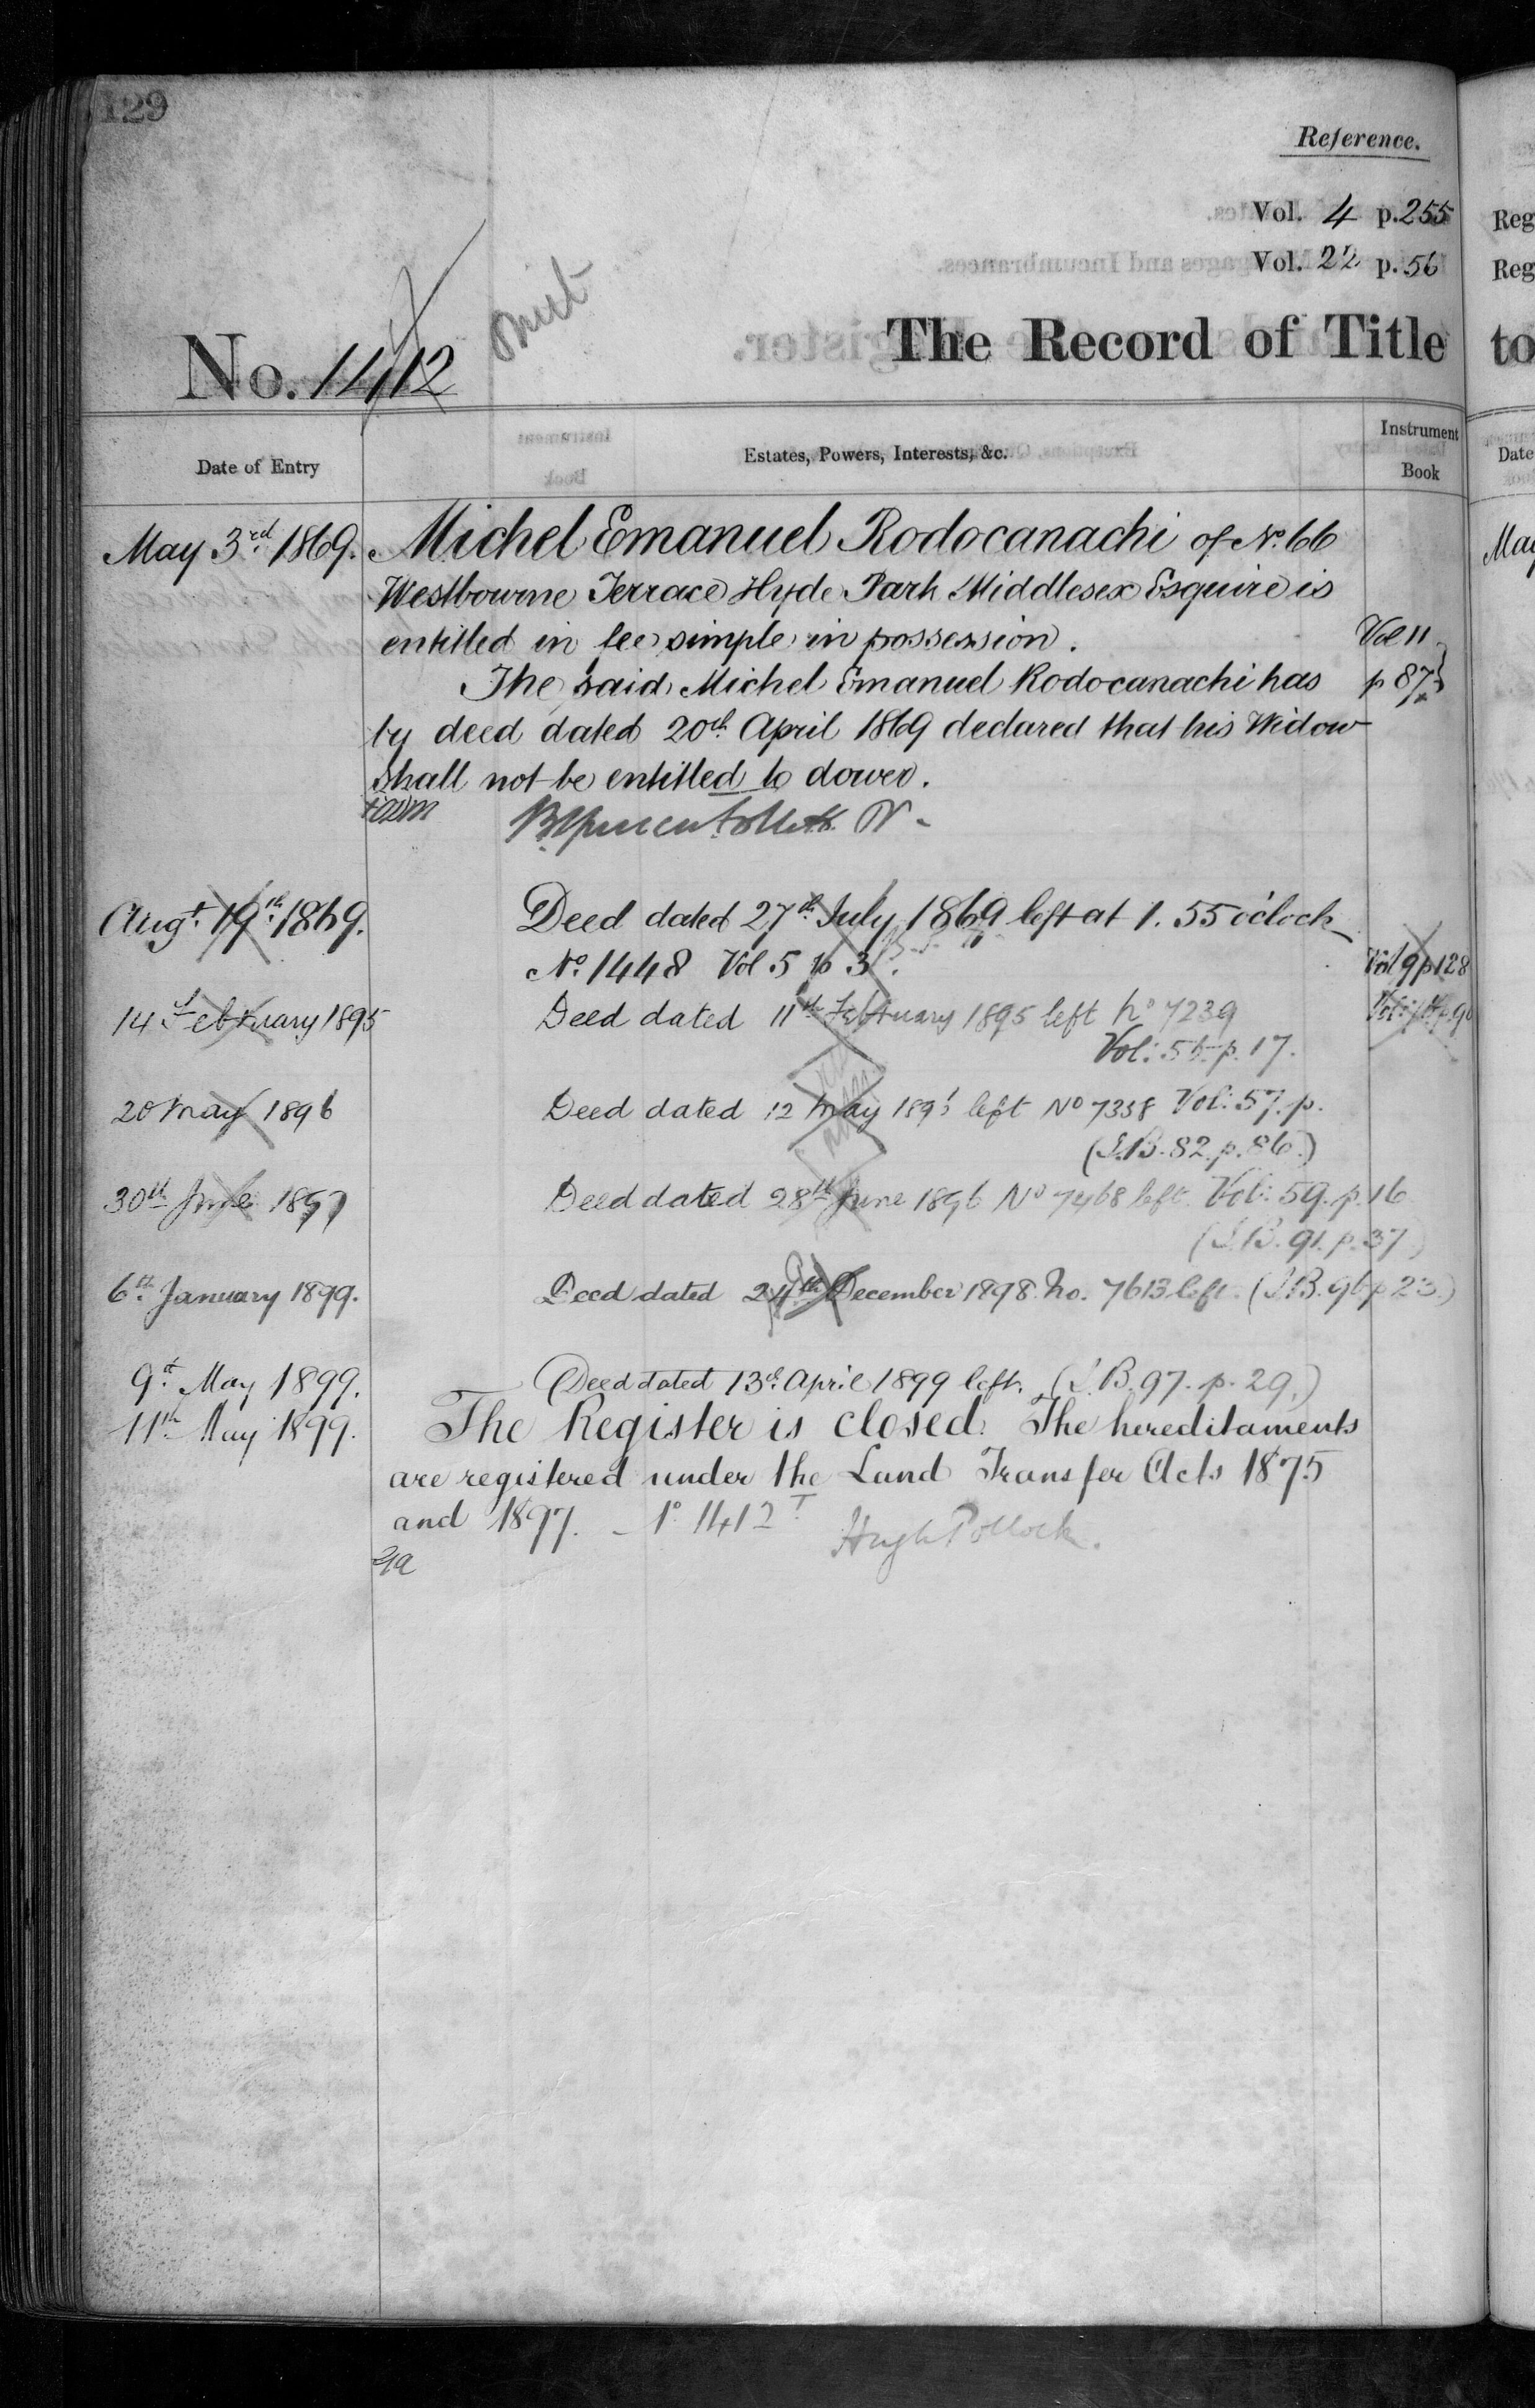 129
Reference.
Vol. 4 p. 255
Vol. 22 p. 56
No. 1412
Omit
The Record of Title
Date of Entry
Estates, Powers, Interests, &c.
Instrument
Book
May 3rd 1869.
Michel Emanuel Rodocanachi of No. 66
Westbourne Terrace Hyde Park Middlesex Esquire is
entitled in fee simple in possession.
Vol 11
The said Michel Emanuel Rodocanachi has
p 87
by deed dated 20th April 1869 declared that his Widow
shall not be entitled to dower.
Augt. 19th 1869.
Deed dated 27th July 1869 left at 1.55 o'clock
No. 1448 Vol 5 p 3
Vol 9 p 128
14 February 1895
Deed dated 11th February 1895 left No 7239
Vol: 55 p. 17.
20 May 1896
Deed dated 12 May 1896 left No 7358 Vol: 57. p.
(I.B. 82. p. 86.)
30th June 1897
Deed dated 28th June 1896 No 7468 left Vol: 59. p. 16
(I.B. 91. p. 37)
6th January 1899.
Deed dated 24th December 1898 No. 7613 left. (I.B. 96 p 23.)
9th May 1899.
Deed dated 13th April 1899 left. (I.B. 97. p. 29.)
11th May 1899.
The Register is closed. The hereditaments
are registered under the Land Transfer Acts 1875
and 1897. – No. 1412 T
Hugh Pollock.
Reg
Reg
to
Date
May